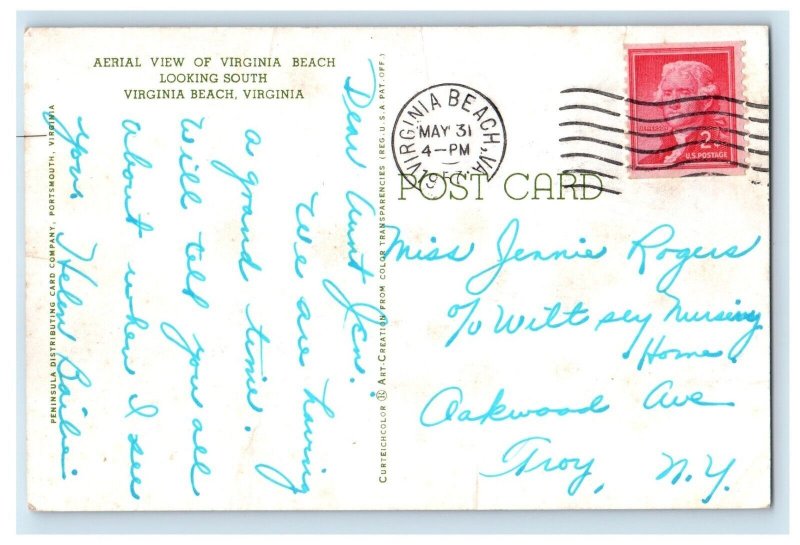 AERIAL VIEW OF VIRGINIA BEACH
LOOKING SOUTH
VIRGINIA BEACH, VIRGINIA
PENINSULA DISTRIBUTING CARD COMPANY, PORTSMOUTH, VIRGINIA
Dear Aunt Jen:
We are having
a grand time.
Will tell you all
about when I see
you. Helen Bailie
CURTEICHCOLOR ® ART-CREATION FROM COLOR TRANSPARENCIES (REG. U.S.A. PAT. OFF.)
VIRGINIA BEACH, VA.
MAY 31
4-PM
JEFFERSON
2¢
U.S. POSTAGE
POST CARD
Miss Jennie Rogers
c/o Wiltsey Nursing
Home
Oakwood Ave
Troy, N.Y.